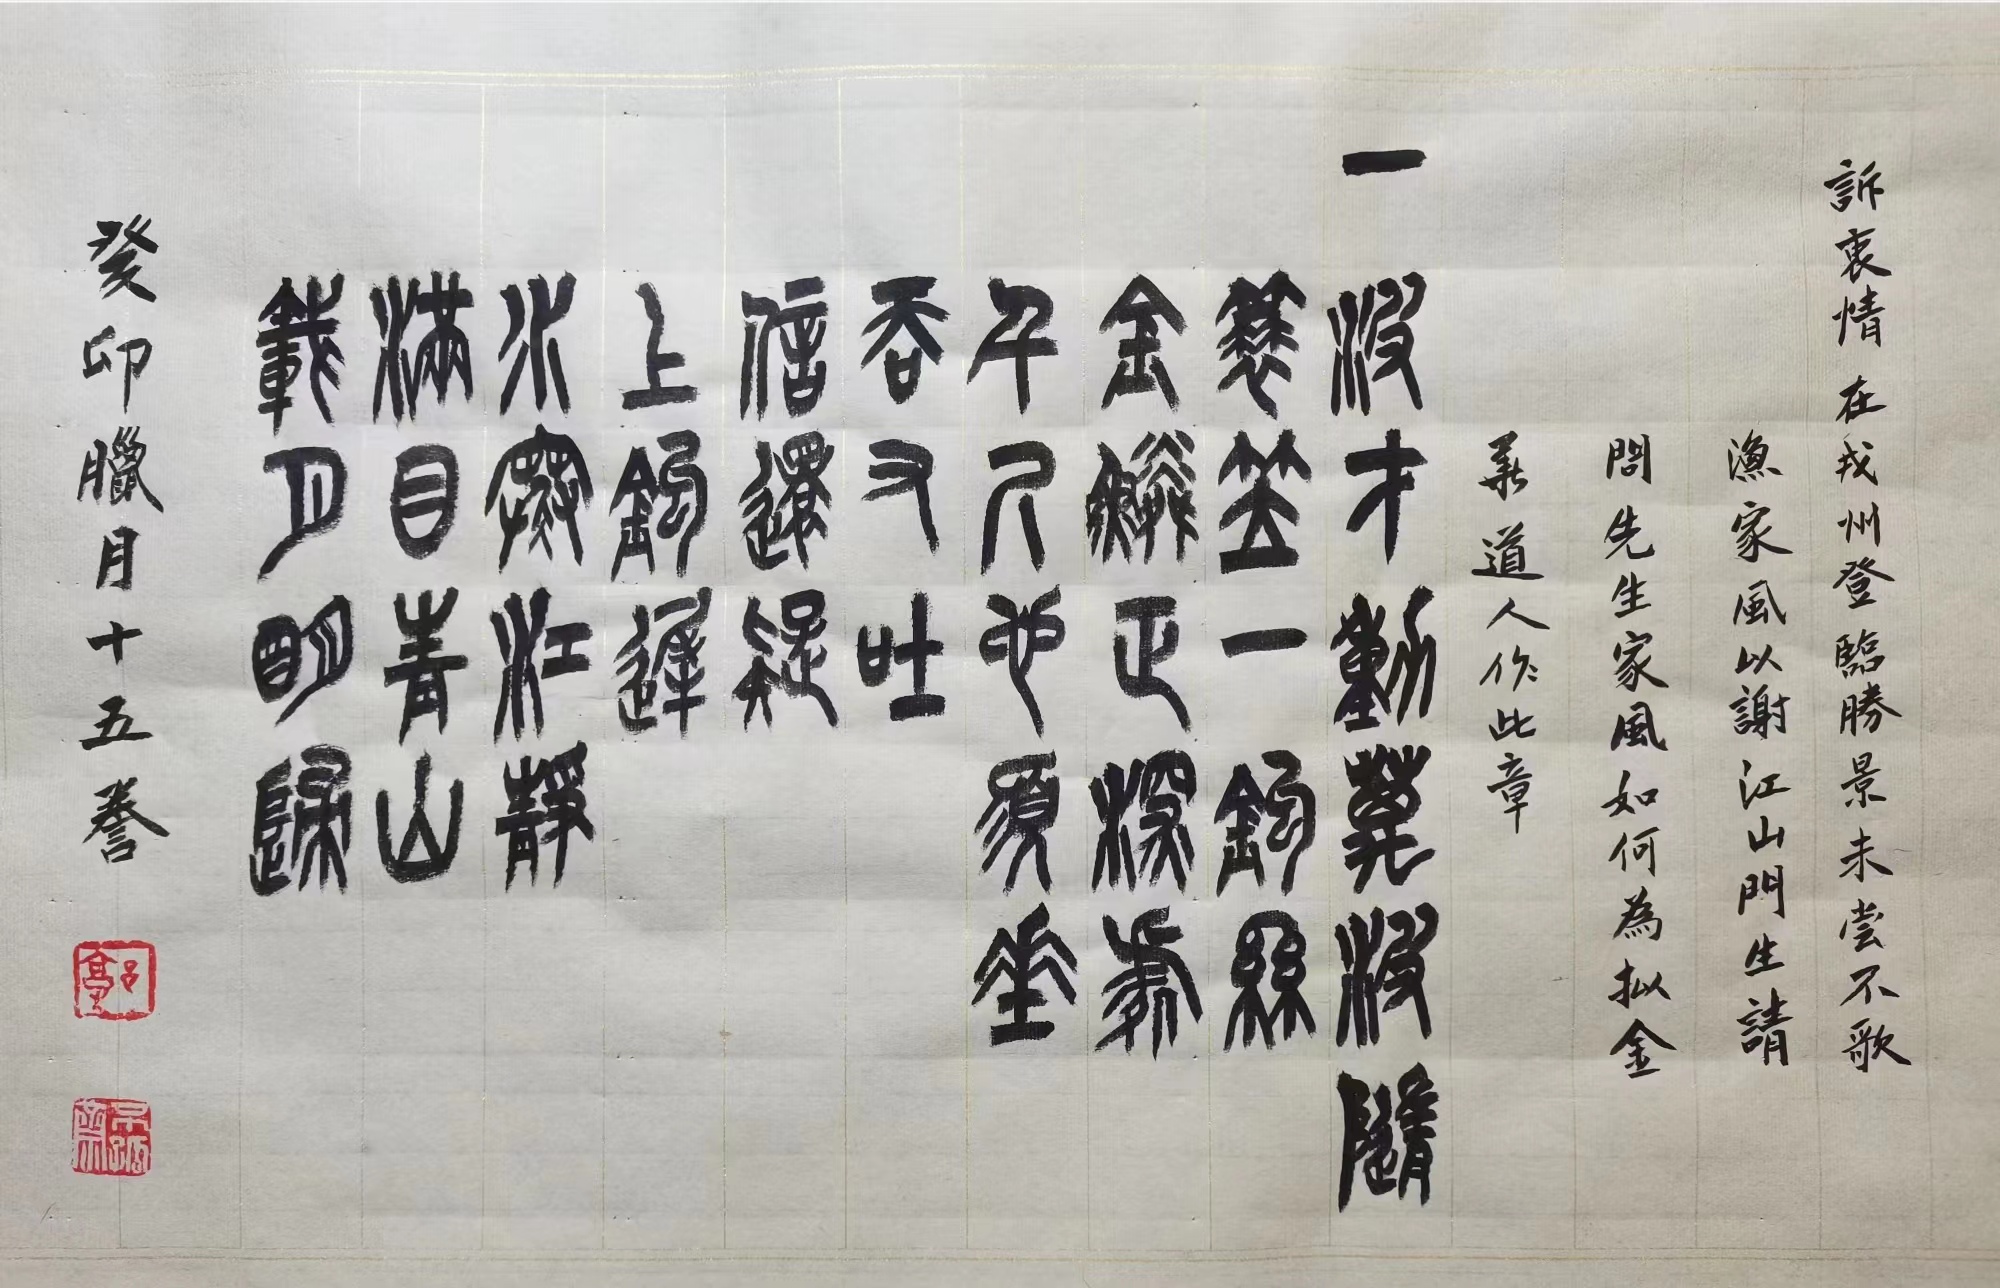 訴衷情 在戎州登臨勝景未尝不歌
漁家風以謝江山門生請
問先生家風如何為拟金
華道人作此章
一波才動萬波隨
蓑笠一鉤絲
金鱗正深處
千尺也須垂
吞又吐
信還疑
上鉤遲
水寒江靜
滿目青山
載月明歸
癸卯臘月十五誊